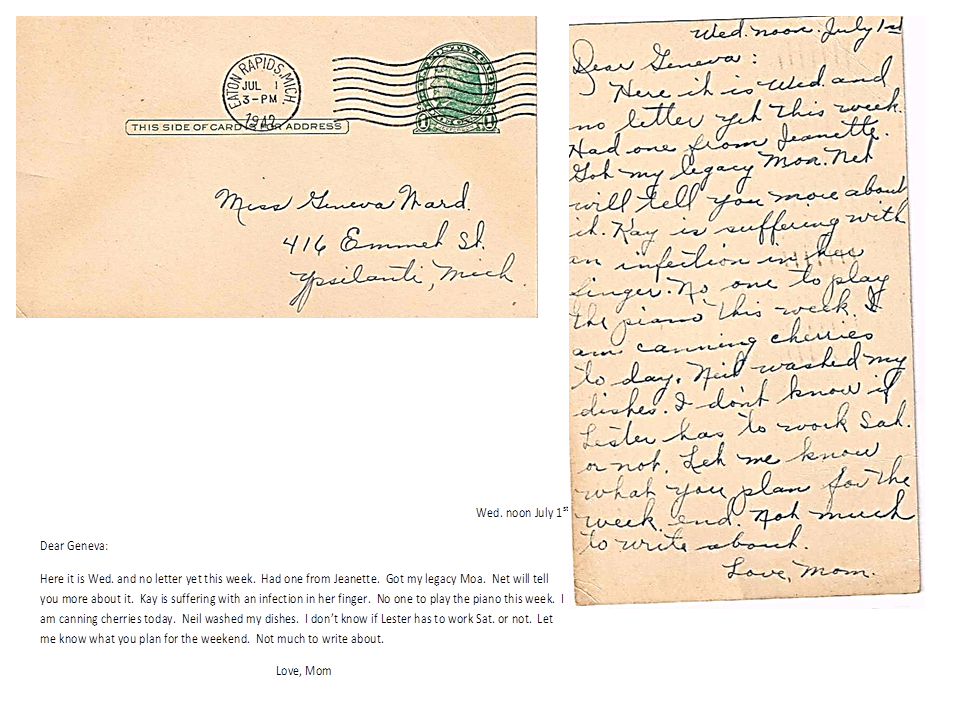 EATON RAPIDS, MICH.
JUL 1
3-PM
1942
THIS SIDE OF CARD IS FOR ADDRESS
Miss Geneva Ward.
416 Emmet St.
Ypsilanti, Mich.
Wed. noon. July 1st
Dear Geneva:
Here it is Wed. and
no letter yet this week.
Had one from Jeanette.
Got my legacy Mon. Net
will tell you more about
it. Kay is suffering with
an infection in her
finger. No one to play
the piano this week. I
am canning cherries
to day. Neil washed my
dishes. I don't know if
Lester has to work Sat.
or not. Let me know
what you plan for the
week end. Not much
to write about.
Love, Mom.
Wed. noon July 1st
Dear Geneva:
Here it is Wed. and no letter yet this week. Had one from Jeanette. Got my legacy Moa. Net will tell
you more about it. Kay is suffering with an infection in her finger. No one to play the piano this week. I
am canning cherries today. Neil washed my dishes. I don't know if Lester has to work Sat. or not. Let
me know what you plan for the weekend. Not much to write about.
Love, Mom